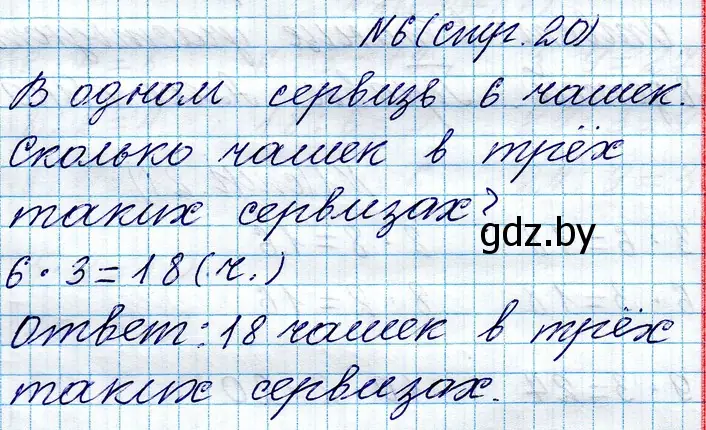 №6(стр.20)
В одном сервизе 6 чашек.
Сколько чашек в трёх
таких сервизах?
gdz.by
6·3=18(ч.)
Ответ: 18 чашек в трёх
таких сервизах.